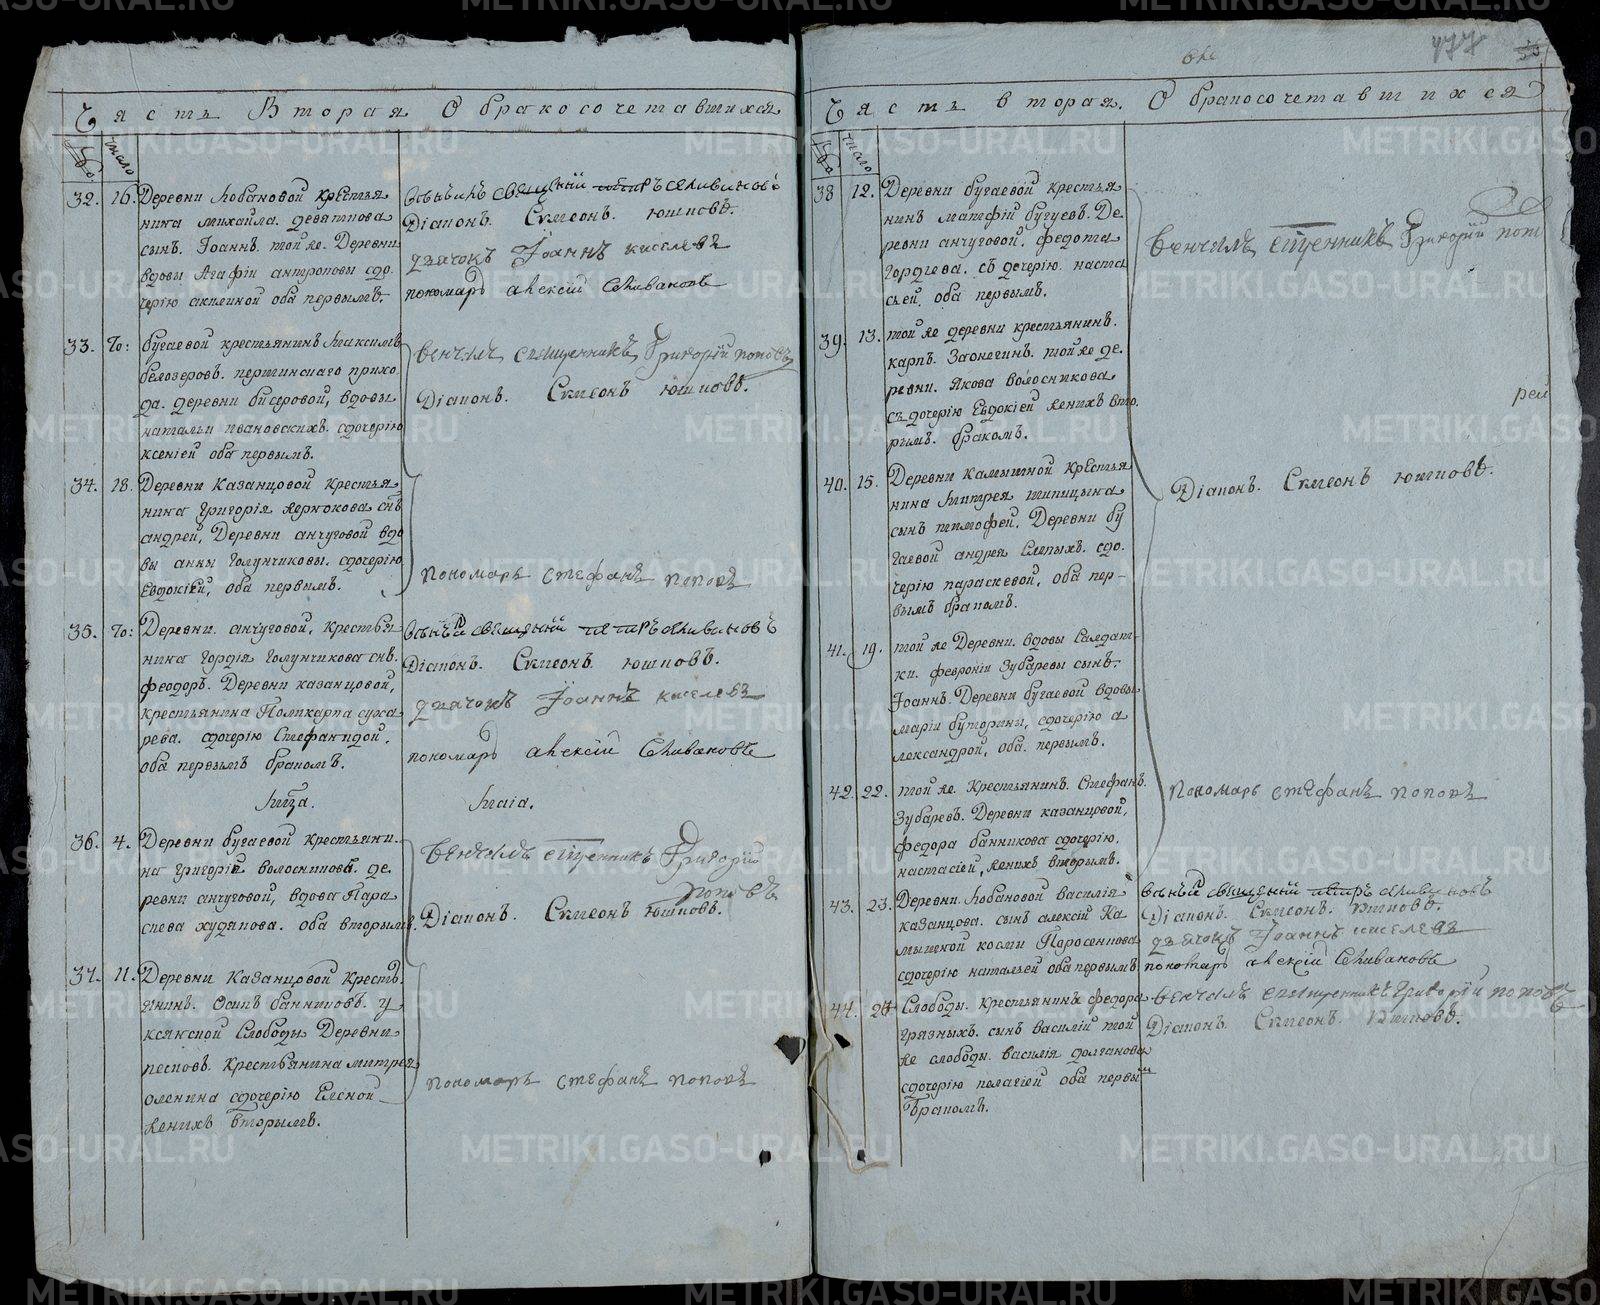 Часть Вторая О бракосочетавшихся
число
32. 16. Деревни Лобановой крестья
нина михаила девяткова
сынъ Іоаннъ. той же Деревни
вдовы Агафіи антроповы сдо
черію акилиной оба первымъ.
Діаконъ. Симеонъ. юшковъ.
дьячокъ Іоаннъ киселевъ
пономарь алексій Селивановъ
33. То: бугаевой крестьянинъ Максимъ
белозеровъ. першинскаго прихо
да. деревни бисеровой, вдовы
натальи ивановскихъ. сдочерію
ксеніей оба первымъ.
венчалъ священникъ Григорій поповъ
Діаконъ. Симеонъ юшковъ.
34. 18. Деревни Казанцовой Крестья
нина Григорія снъ
андрей, Деревни анчуговой вдо
вы анны Голунчиковы. сдочерію
Евдокіей, оба первымъ.
пономарь стефанъ поповъ
35. То: Деревни. анчуговой, крестья
нина Гордія Голунчикова снъ.
феодоръ. Деревни казанцовой,
крестьянина Поликарпа суха
рева. сдочерію Стефанидой,
оба первымъ бракомъ.
Діаконъ. Симеонъ юшковъ.
дьячокъ Іоаннъ киселевъ
пономарь алексій Селивановъ
Мца. Маіа.
36. 4. Деревни бугаевой крестьяни
на Григоріи волосниковъ. де
ревни анчуговой, вдова Пара
скева худякова. оба вторымъ.
венчалъ сщенникъ Григорій
поповъ
Діаконъ. Симеонъ юшковъ.
37. 11. Деревни Казанцовой Крестъ
янинъ. Осипъ банниковъ. у
ксянской Слободы Деревни
песковъ. Крестьянина митрея
оленина сдочерію Еленой
женихъ вторымъ.
пономарь стефанъ поповъ
477
Часть вторая. О бракосочетавшихся
число
38 12. Деревни бугаевой крестья
нинъ матфій бугуевъ. Де
ревни анчуговой. федота
Гордіева. съ дочерію наста
сьей, оба первымъ.
венчалъ сщенникъ Григорій поп
рей
39. 13. той же деревни крестьянинъ.
карпъ. Заонегинъ. той же де
ревни. Якова волосникова
съ дочерію Евдокіей женихъ вто
рымъ. бракомъ.
40. 15. Деревни камышной крестья
нина Митрея шипицына
сынъ тимофей. Деревни бу
гаевой андрея Слепыхъ. сдо
черію параскевой, оба пер
вымъ бракомъ.
Діаконъ. Симеонъ юшковъ.
41. 19. той же Деревни. вдовы Салдат
ки. февроніи Зубаревы сынъ.
Іоаннъ. Деревни бугаевой вдовы
маріи буторины, сдочерію а
лександрой, оба. первымъ.
42. 22. той же. Крестьянинъ. Стефанъ.
Зубаревъ. Деревни казанцовой,
федора банникова сдочерію.
настасіей, женихъ вторымъ.
пономарь стефанъ поповъ
43. 23. Деревни Лобановой василія
казанцова. сынъ алексій Ка
мышной косми Поросенкова
сдочерію натальей оба первымъ
Діаконъ. Симеонъ. юшковъ.
дьячокъ Іоаннъ киселевъ
пономарь алексій Селивановъ
44. Слободы. крестьянинъ федора
Грязныхъ. сынъ василій той
же слободы. василія долганова
сдочерію пелагіей оба первый
бракомъ.
венчалъ священникъ Григорій поповъ
Діаконъ. Симеонъ. юшковъ.